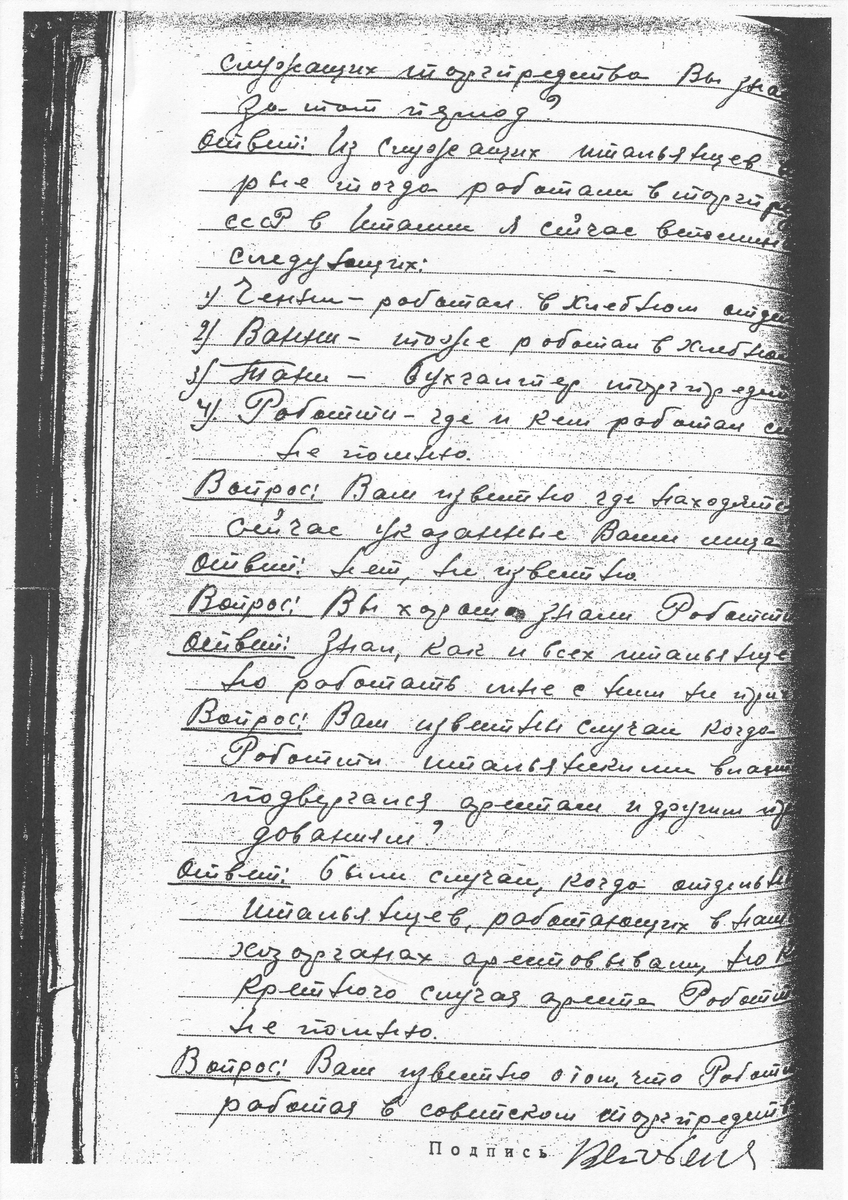 служащих торгпредства Вы зна
за тот период?
Ответ: Из служащих итальянцев
рые тогда работали в торгпр
СССР в Италии я сейчас вспомин
следующих:
1) Ченни – работал в хлебном отде
2) Ванни – тоже работал в хлебно
3) Тани – бухгалтер торгпредст
4) Роботти – где и кем работал
не помню.
Вопрос: Вам известно где находятся
сейчас указанные Вами лица
Ответ: Нет, не известно.
Вопрос: Вы хорошо знали Роботти
Ответ: Знал, как и всех итальянце
но работать мне с ним не прих
Вопрос: Вам известны случаи когда
Роботти итальянскими власт
подвергался арестам и другим пр
дованиям?
Ответ: Были случаи, когда отдельн
итальянцев, работающих в наш
хозорганах арестовывали, но к
кретного случая ареста Роботт
не помню.
Вопрос: Вам известно о том, что Робот
работая в советском торгпредств
Подпись